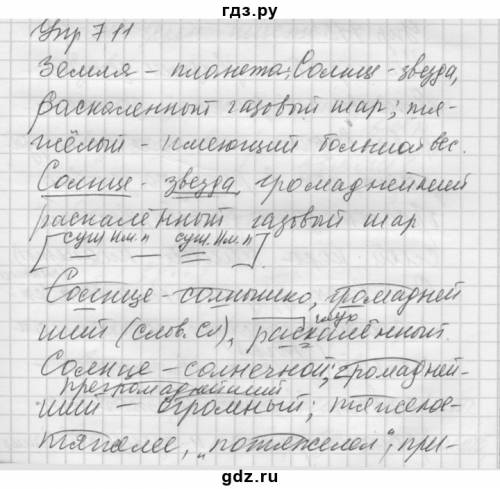 гдз.ру
Упр 711
Земля – планета; Солнце - звезда,
раскаленный газовый шар; тя-
жёлый - имеющий большой вес.
Солнце - звезда, громаднейший
раскалённый газовый шар
[сущ. Им. п – сущ. Им. п].
Солнце - солнышко, громадней
ший (слов. сл), раскалённый.
глух
Солнце – солнечной; громадней-
прегромаднейший
ший – огромный; тяжелое-
тяжелее, „потяжелел“, при-
gdz.ru